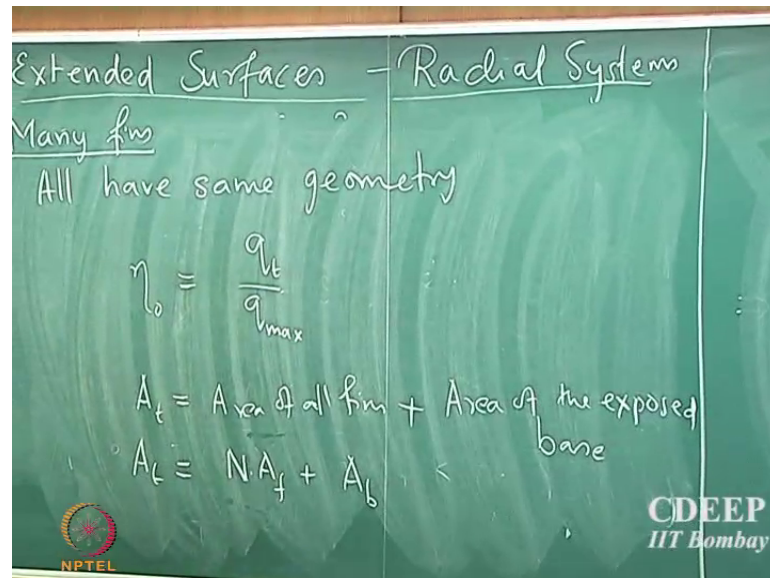 Extended Surfaces - Radial Systems
Many fins
All have same geometry
η₀ ≡ q_t / q_max
A_t = Area of all fins + Area of the exposed base
A_t ≡ N·A_f + A_b
NPTEL
CDEEP
IIT Bombay